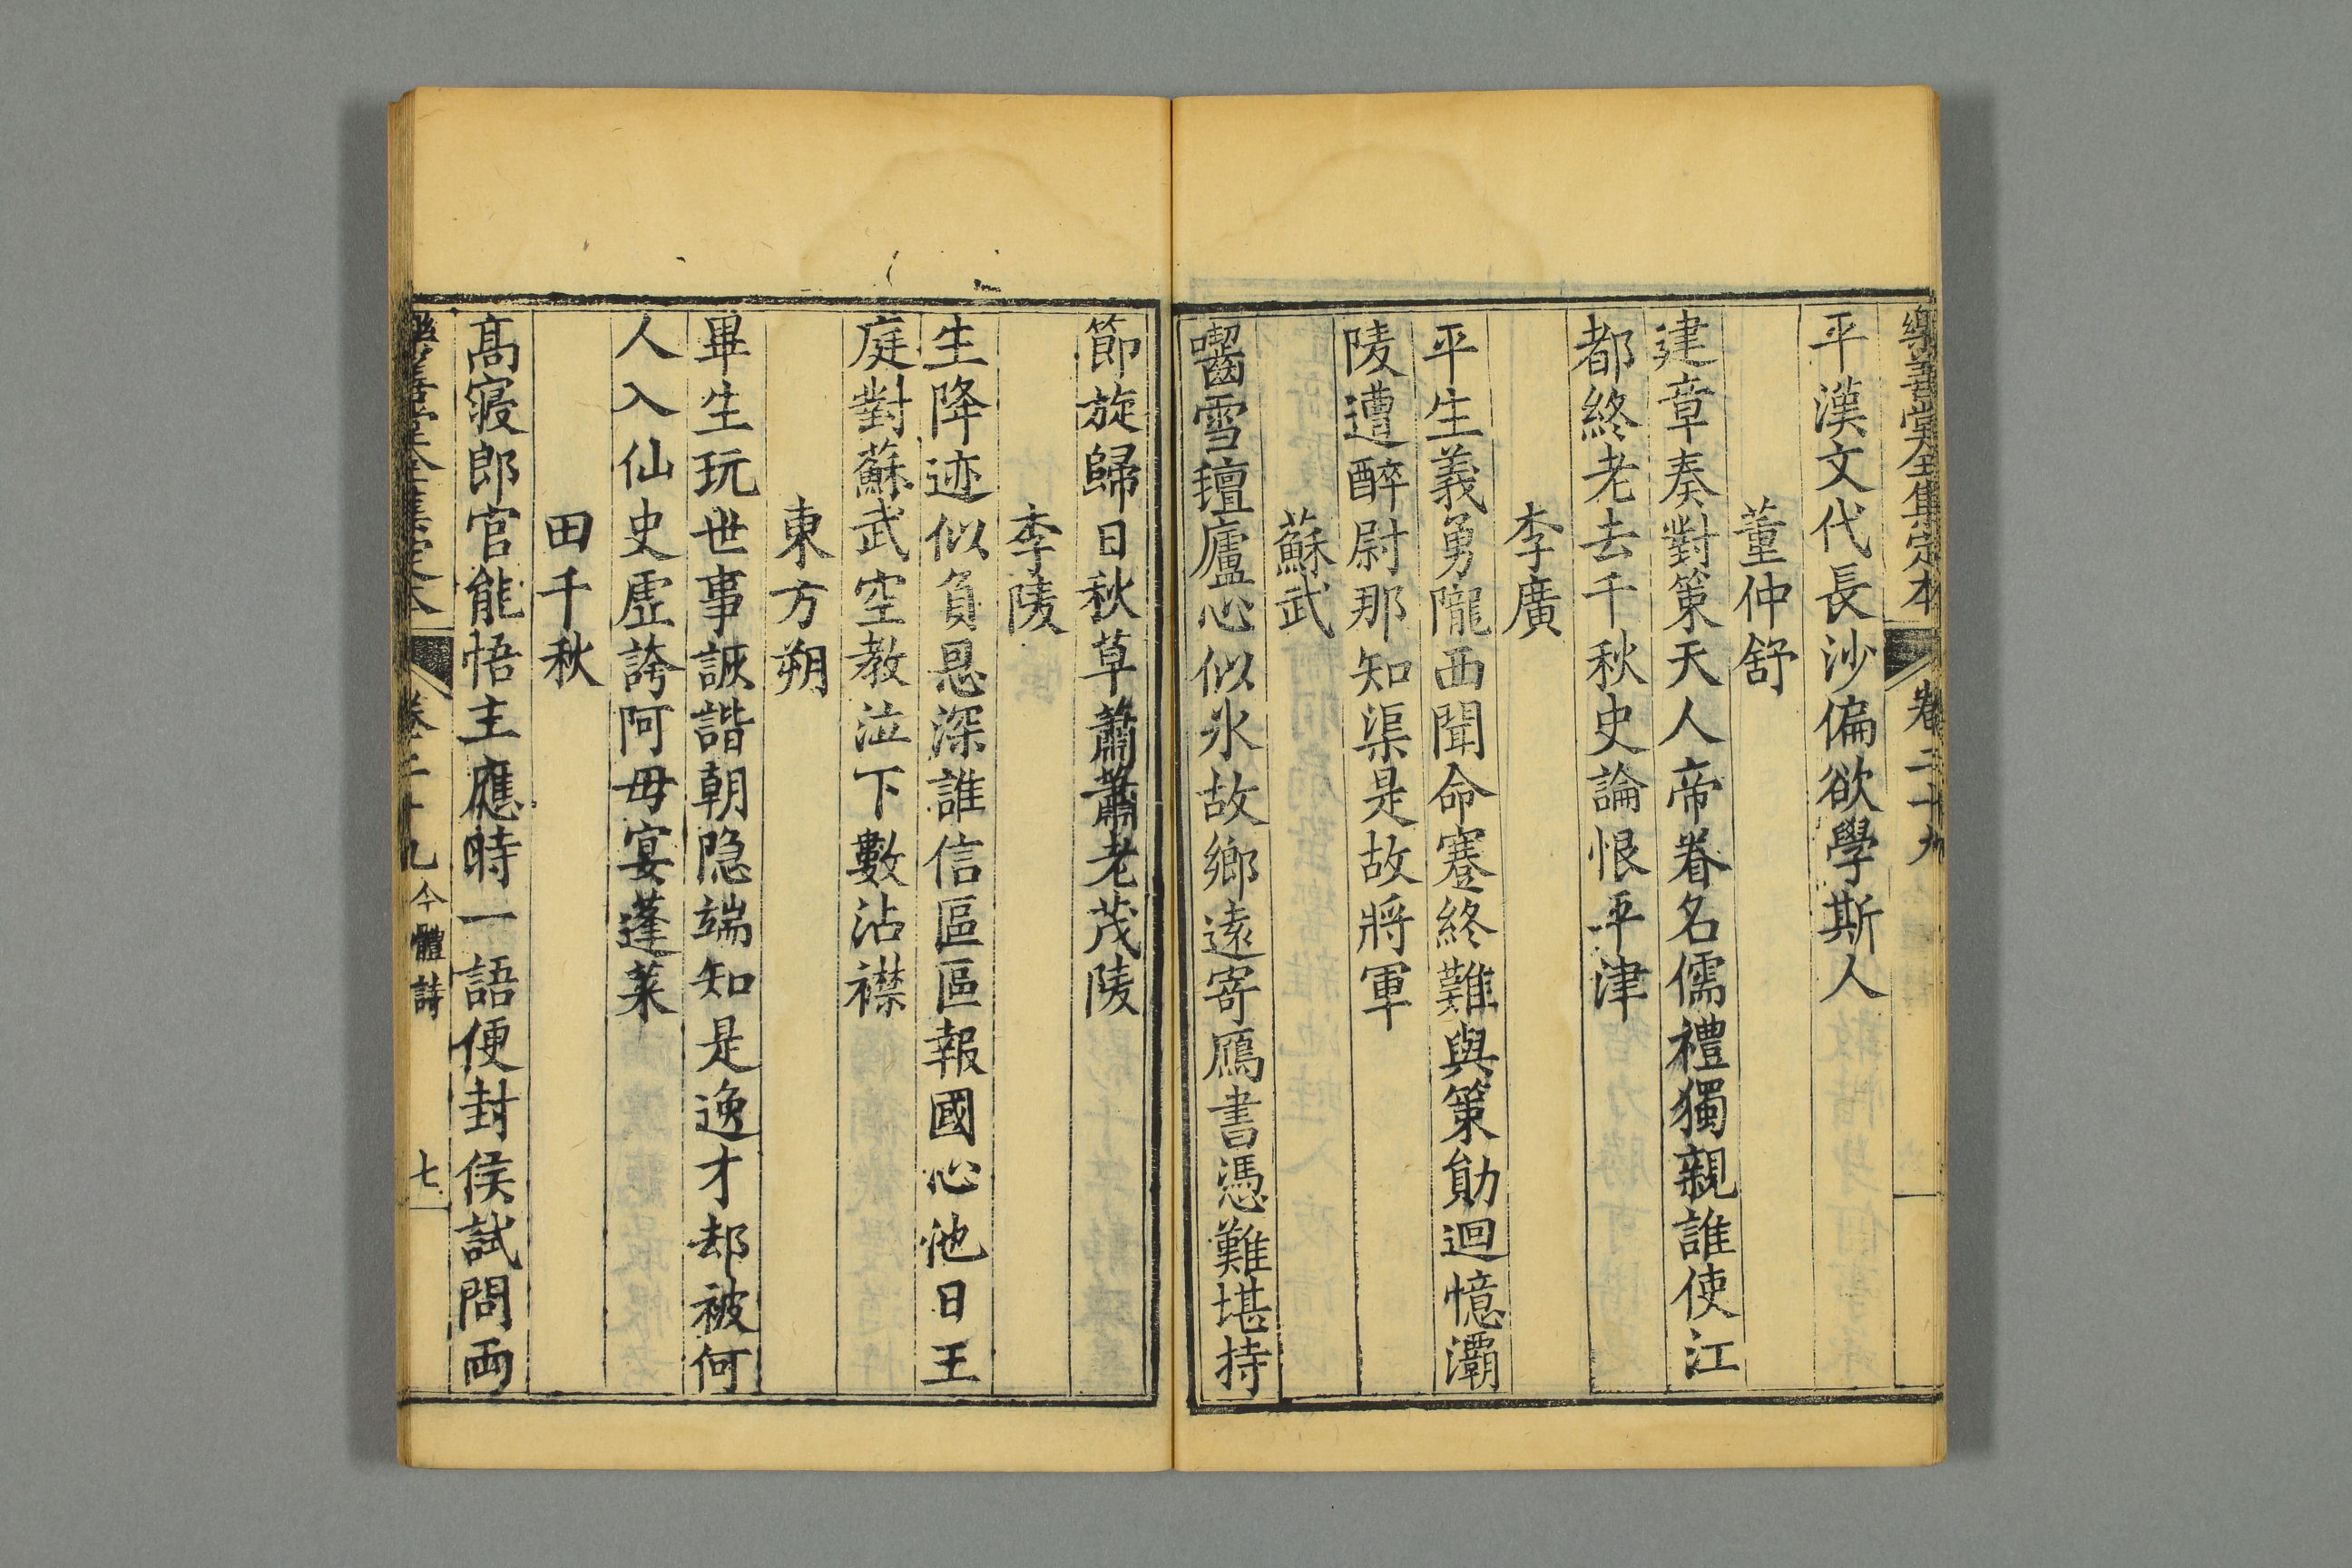 樂善堂全集定本 卷二十九
平漢文代長沙偏欲學斯人
董仲舒
建章奏對策天人帝眷名儒禮獨親誰使江
都終老去千秋史論恨平津
李廣
平生義勇隴西聞命蹇終難與策勛迴憶灞
陵遭醉尉那知渠是故將軍
蘇武
囓雪氊廬心似氷故鄉遠寄鴈書憑難堪持
節旋歸日秋草蕭蕭老茂陵
李陵
生降迹似負恩深誰信區區報國心他日王
庭對蘇武空教泣下數沾襟
東方朔
畢生玩世事詼諧朝隐端知是逸才却被何
人入仙史虛誇阿母宴蓬萊
田千秋
髙寢郎官能悟主應時一語便封侯試問両
樂善堂全集定本 卷二十九 今體詩 七